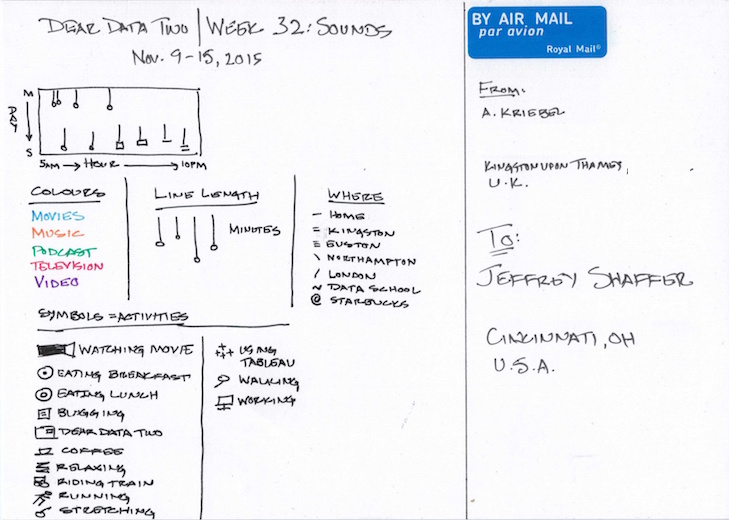 DEAR DATA TWO | WEEK 32: SOUNDS
NOV. 9-15, 2015
M
DAY
S
5AM → HOUR → 10PM
COLOURS
MOVIES
MUSIC
PODCAST
TELEVISION
VIDEO
LINE LENGTH
MINUTES
WHERE
– HOME
= KINGSTON
≡ EUSTON
\ NORTHAMPTON
/ LONDON
~ DATA SCHOOL
@ STARBUCKS
SYMBOLS = ACTIVITIES
WATCHING MOVIE
EATING BREAKFAST
EATING LUNCH
BLOGGING
DEAR DATA TWO
COFFEE
RELAXING
RIDING TRAIN
RUNNING
STRETCHING
USING
TABLEAU
WALKING
WORKING
BY AIR MAIL
par avion
Royal Mail®
FROM:
A. KRIEBEL
KINGSTON UPON THAMES,
U.K.
TO:
JEFFREY SHAFFER
CINCINNATI, OH
U.S.A.